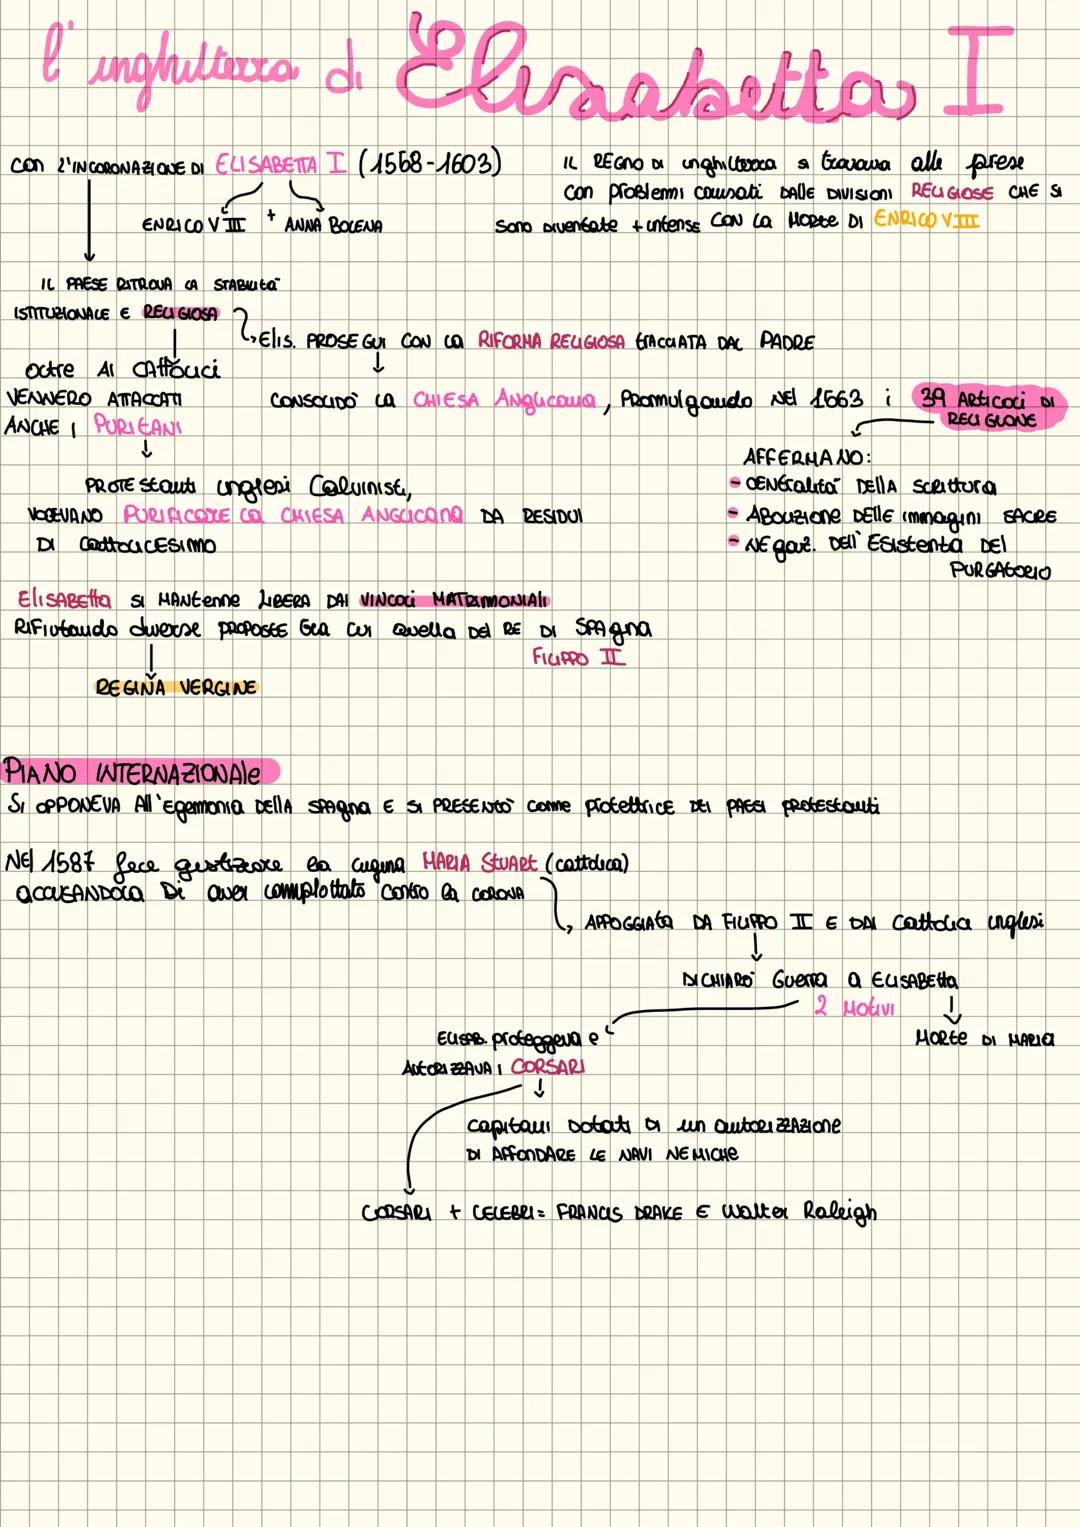 l'inghilterra di Elisabetta I
con l'INCORONAZIONE DI ELISABETTA I (1558-1603)
IL REGNO DI inghilterra si trovava alle prese
con problemi causati DALLE DIVISIONI RELIGIOSE CHE SI
sono diventate + intense CON LA MORTE DI ENRICO VIII
ENRICO VIII + ANNA BOLENA
IL PAESE RITROVA LA STABILITÀ
ISTITUZIONALE E RELIGIOSA
Elis. PROSEGUI CON LA RIFORMA RELIGIOSA tRACCIATA DAL PADRE
oltre AI CAttolici
VENNERO ATTACCATI
ANCHE I PURITANI
CONSOLIDÒ LA CHIESA Anglicana, Promulgando NEl 1563 i 39 ARTICOLI DI
RELIGIONE
PROTEstanti inglesi Calvinisti,
VOLEVANO PURIFICARE LA CHIESA ANGLICANA DA RESIDUI
DI CattoLICESIMO
AFFERMANO:
- CENtralità DELLA SCRIttura
- ABOLIZIONE DELLE immagini SACRE
- NEgaz. DEll'ESistenta DEl
PURGAtORIO
ElISABEtta SI MANtenne LIBERA DAI VINCOLI MATRIMONIALI
RIFIutando diverse PROPOSTE tra cui quella DEl RE DI SPAgna
FILIPPO II
REGINA VERGINE
PIANO INTERNAZIONAle
SI OPPONEVA All'Egemonia DELLA SPAgna E SI PRESENTÒ come protettrice DEI PAESI PROtEstanti
NEl 1587 fece giustiziare la cugina MARIA StUARt (cattolica)
ACCUSANDOLA Di aver complottato contro la CORONA
APPOGGIAta DA FILIPPO II E DAI Cattolici inglesi
DICHIARÒ GuerrA a ELISABEtta
2 MOtIVI
ELISAB. proteggeva e
AUtORIZZAVA I CORSARI
MORtE DI MARIA
capitani dotati di un autoriZZAZIone
DI AFFONDARE LE NAVI NEMICHE
CORSARI + CELEBRI = FRANCIS DRAKE E Walter Raleigh